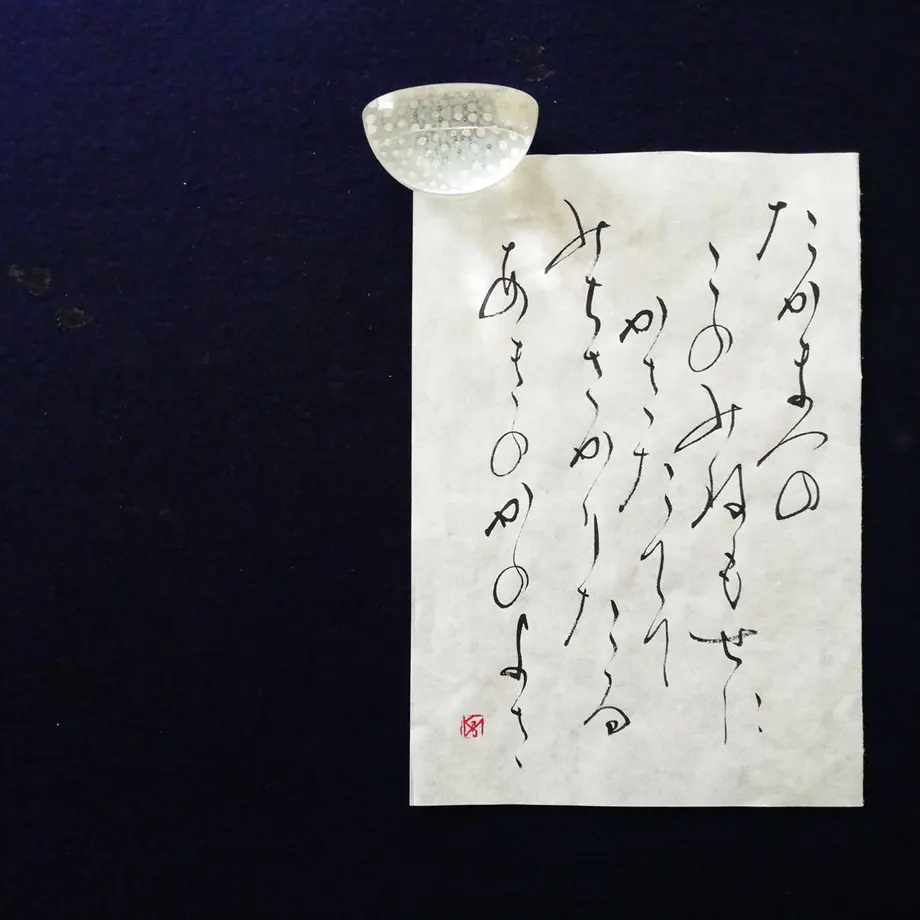 たかまつの
このみねもせに
かさたてて
みちさかりたる
あきのかのよさ